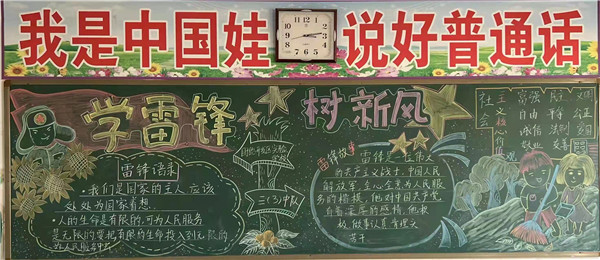 我是中国娃 说好普通话
学雷锋 树新风
雷锋语录
·我们是国家的主人应该
处处为国家着想
·人的生命是有限的,可为人民服务
是无限的要把有限的生命投入到无限的
为人民服务中
三(3)中队
雷锋故事
雷锋是一位伟大
的共产主义战士,中国人民
解放军,全心全意为人民服
务的楷模,他对中国共产党
有着深厚的感情,他积
极做事认真
苦干
社会主义核心价值观
富强 民主 文明
自由 平等 公正
诚信 法制
敬业 友善